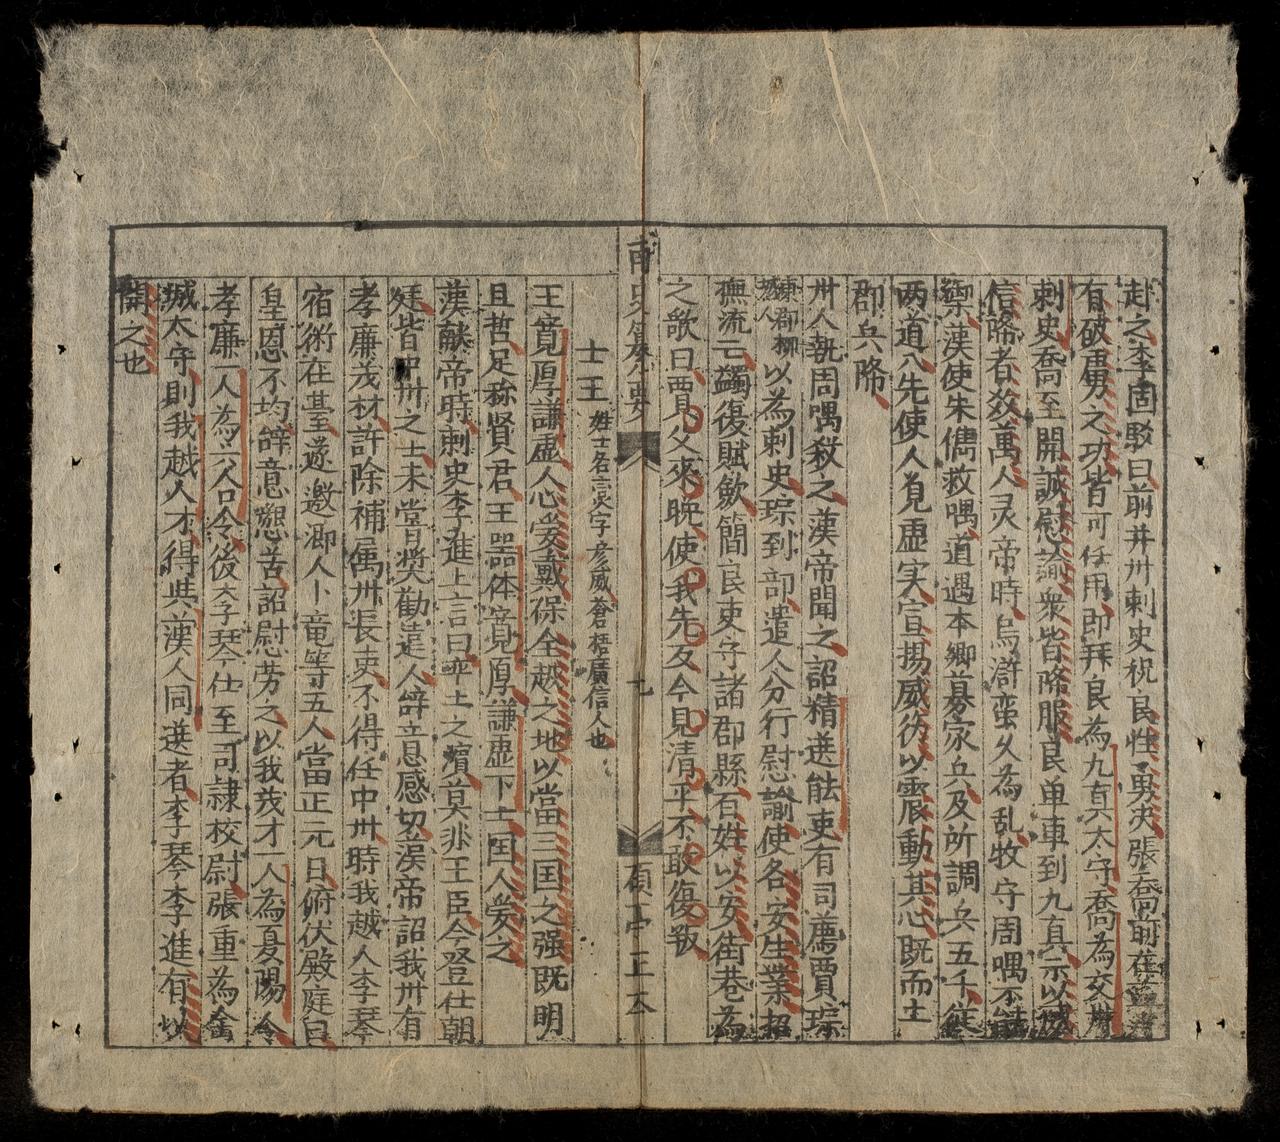 赴之李固駁曰前并州刺史祝良性勇决張喬前在益州
有破虜之功皆可任用即拜良為九真太守喬為交州
刺史喬至開誠慰諭衆皆降服良单車到九真示以威
信降者数萬人灵帝時烏滸蛮久為乱牧守周喁不能
禦漢使朱儁救喁道過本郷募家兵及所調兵五千
两道入先使人覘虚实宣揚威徳以震動其心既而土
郡兵降
州人執周喁殺之漢帝聞之詔精选能吏有司薦賈琮
東郡聊城人以為刺史琮到部遣人分行慰諭使各安生業招
撫流亡蠲復賦歛簡良吏守諸郡縣百姓以安街巷為
之歌曰賈父來晚使我先反今見清平不敢復叛
南史纂要 七 碩亭正本
士王姓士名燮字彦威蒼梧廣信人也
王寛厚謙虚人心愛戴保全越之地以當三国之强既明
且哲足称賢君王器体寛厚謙虚下士国人愛之
漢献帝時刺史李進上言曰率土之濱莫非王臣今登仕朝
廷皆中州之士未嘗奨勧遠人辞意感切漢帝詔我州有
孝廉茂材許除補属州長吏不得任中州時我越人李琴
宿衛在臺遂邀郷人卜竜等五人當正元日俯伏殿庭曰
皇恩不均辞意懇苦詔慰劳之以我茂才一人為夏陽令
孝廉一人為六合令後李琴仕至司隷校尉張重為金
城太守則我越人才得与漢人同选者李琴李進有以
開之也